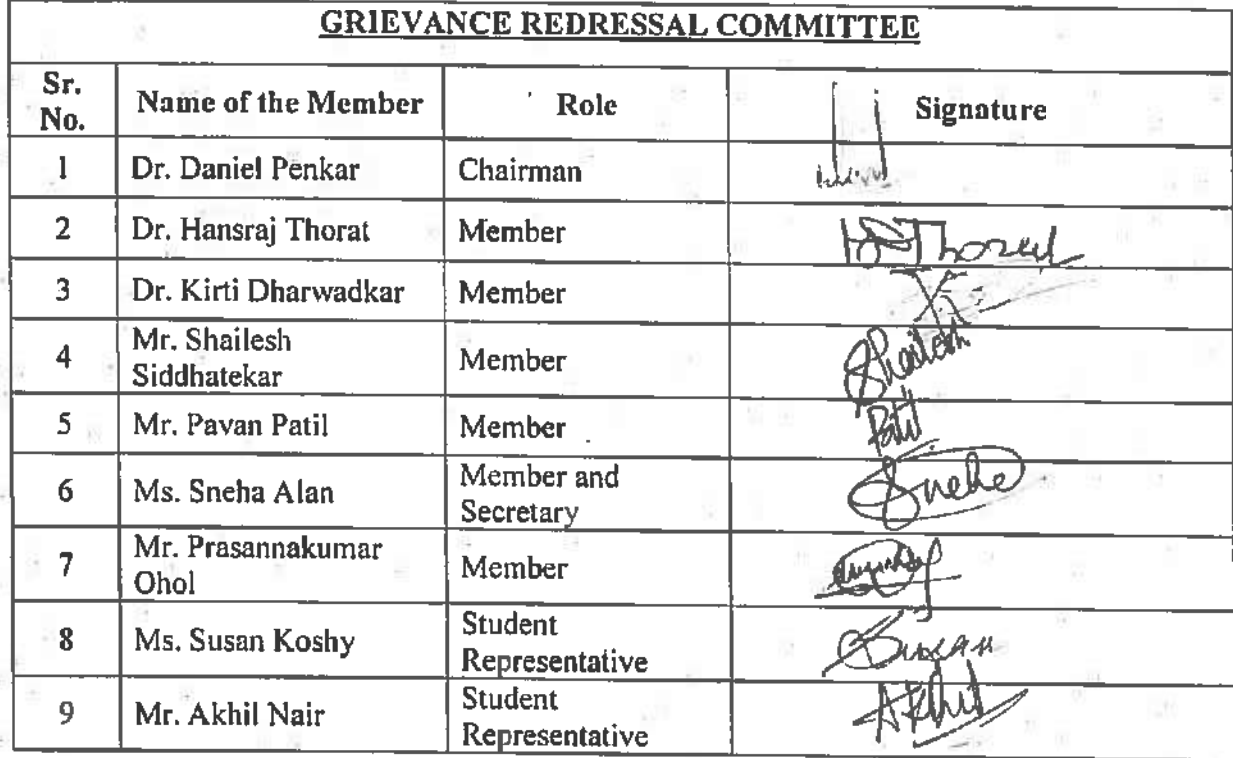 GRIEVANCE REDRESSAL COMMITTEE
Sr. No. Name of the Member Role Signature
1 Dr. Daniel Penkar Chairman
2 Dr. Hansraj Thorat Member Thorat
3 Dr. Kirti Dharwadkar Member
4 Mr. Shailesh Siddhatekar Member Shailesh
5 Mr. Pavan Patil Member Patil
6 Ms. Sneha Alan Member and Secretary Sneha
7 Mr. Prasannakumar Ohol Member
8 Ms. Susan Koshy Student Representative Susan
9 Mr. Akhil Nair Student Representative Akhil